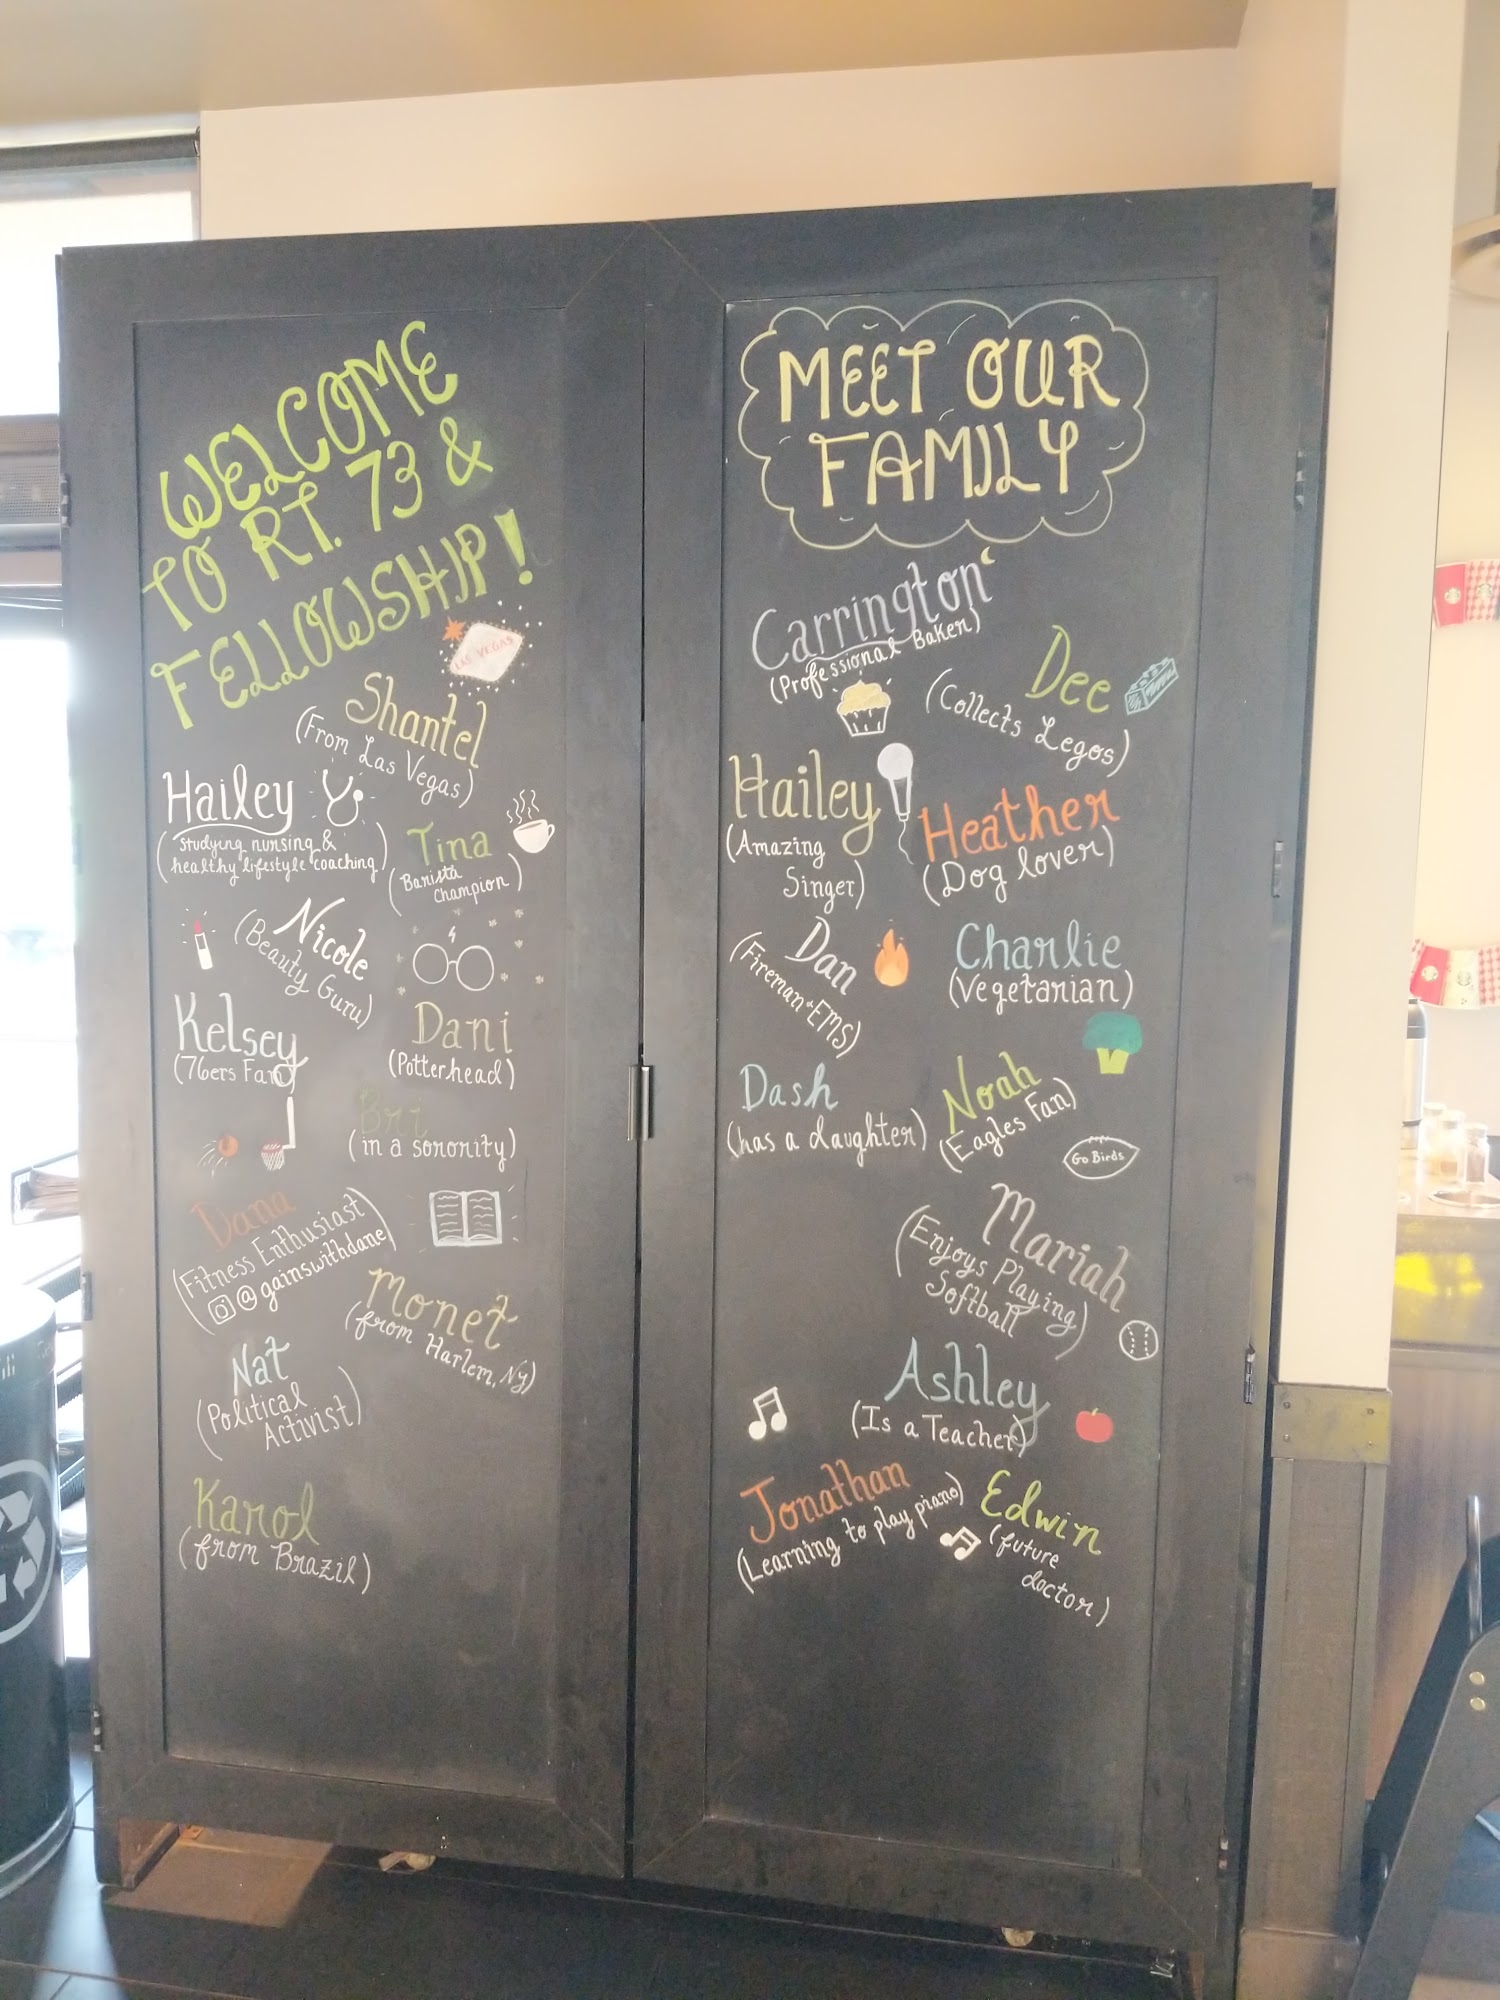 WELCOME
TO RT. 73 &
FELLOWSHIP!
LAS VEGAS
Shantel
(From Las Vegas)
Hailey
(studying nursing &
healthy lifestyle coaching)
Tina
(Barista
Champion)
Nicole
(Beauty Guru)
Kelsey
(76ers Fan)
Dani
(Potterhead)
Bri
(in a sorority)
Dana
(Fitness Enthusiast
@gainswithdane)
Monet
(from Harlem, Ny)
Nat
(Political
Activist)
Karol
(from Brazil)
MEET OUR
FAMILY
Carrington
(Professional Baker)
Dee
(Collects Legos)
Hailey
(Amazing
Singer)
Heather
(Dog lover)
Dan
(Fireman + EMS)
Charlie
(Vegetarian)
Dash
(has a daughter)
Noah
(Eagles Fan)
Go Birds
Mariah
(Enjoys Playing
Softball)
Ashley
(Is a Teacher)
Jonathan
(Learning to play piano)
Edwin
(future
doctor)